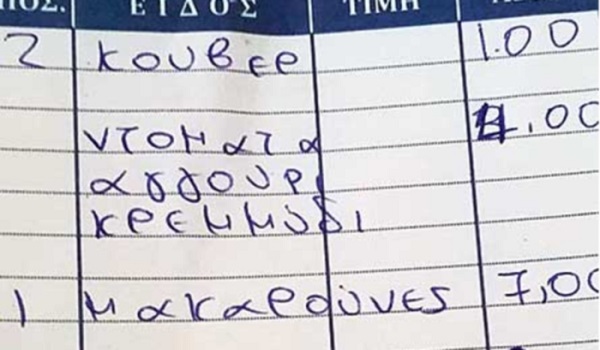 ΠΟΣ. ΕΙΔΟΣ ΤΙΜΗ
2 κουβερ 1.00
ντοματα 4.00
αγγουρι
κρεμμυδι
1 μακαρούνες 7,00